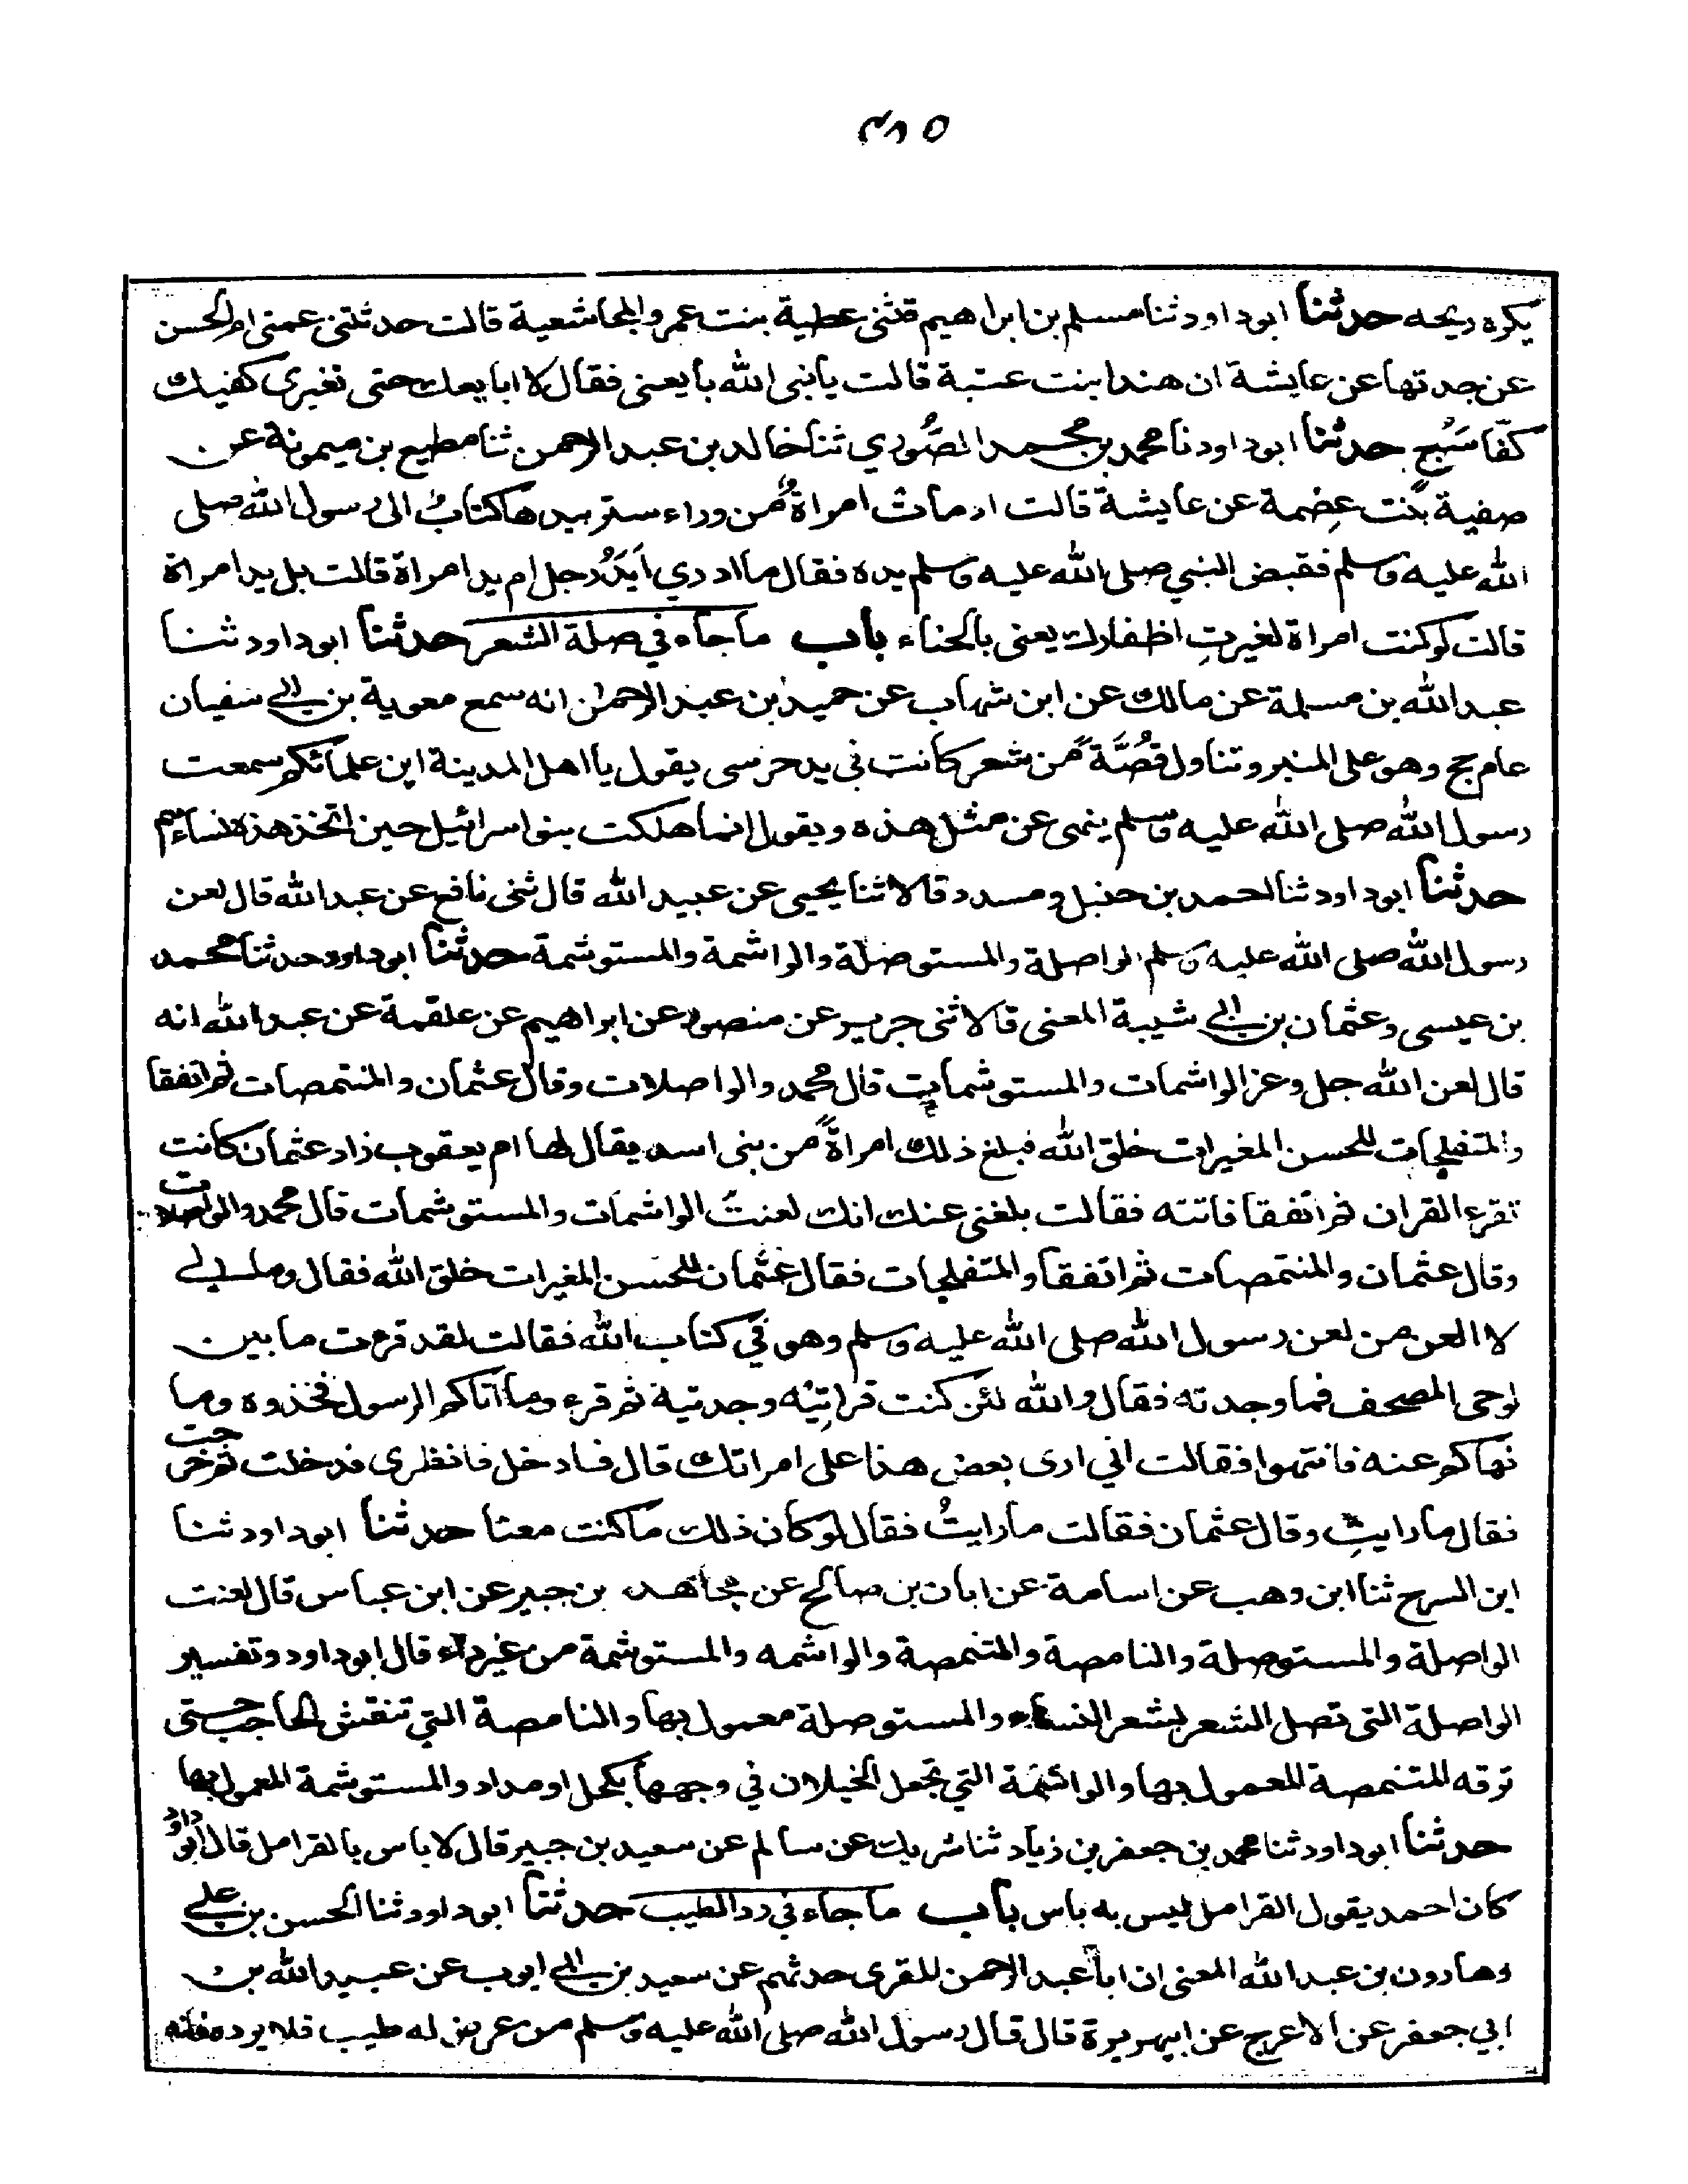 يكره ريحه حدثنا ابوداود ثنا مسلم بن ابراهيم حدثتنى عطية بنت عمرو المجاشعية قالت حدثتنى عمتى ام الحسن
عن جدتها عن عايشة ان هندا بنت عتبة قالت يا نبى الله بايعنى فقال لا ابايعك حتى تغيرى كفيك
كفّا سَبُع حدثنا ابوداود نا محمد بن محمد الصُّوري ثنا خالد بن عبد الرحمن ثنا مطيع بن ميمونة عن
صفية بنت عِصمة عن عايشة قالت اومات امراة من وراء ستر بيدها كتابٌ الى رسول الله صلى
الله عليه وسلم فقبض النبي صلى الله عليه وسلم يده فقال ما ادري اَيَدُ رجل ام يد امراة قالت بل يد امراة
قالت لوكنت امراة لغيرتِ اظفارك يعنى بالحناء باب ما جاء في صلة الشعر حدثنا ابوداود ثنا
عبد الله بن مسلمة عن مالك عن ابن شهاب عن حميد بن عبد الرحمن انه سمع معوية بن ابي سفيان
عام حج وهو على المنبر وتناول قُصَّةً من شعر كانت في يد حرسى يقول يا اهل المدينة اين علمائكم سمعت
رسول الله صلى الله عليه وسلم ينهى عن مثل هذه ويقول انما هلكت بنو اسرائيل حين اتخذ هذه نساءهم
حدثنا ابوداود ثنا احمد بن حنبل و مسدد قالا ثنا يحيى عن عبيد الله قال ثنى نافع عن عبد الله قال لعن
رسول الله صلى الله عليه وسلم الواصلة والمستوصلة والواشمة والمستوشمة حدثنا ابوداود حدثنا محمد
بن عيسى وعثمان بن ابي شيبة المعنى قالا ثنى جرير عن منصور عن ابراهيم عن علقمة عن عبد الله انه
قال لعن الله جل وعز الواشمات والمستوشمات قال محمد والواصلات وقال عثمان والمنتمصات ثم اتفقا
والمتفلجات للحسن المغيرات خلق الله فبلغ ذلك امراةً من بنى اسد يقال لها ام يعقوب زاد عثمان كانت
تقرء القران ثم اتفقا فاتته فقالت بلغنى عنك انك لعنتَ الواشمات والمستوشمات قال محمد والواصلات
وقال عثمان والمنتمصات ثم اتفقا والمتفلجات فقال عثمان للحسن المغيرات خلق الله فقال ومالي
لا العن من لعن رسول الله صلى الله عليه وسلم وهو في كتاب الله فقالت لقد قرءت ما بين
لوحى المصحف فما وجدته فقال والله لئن كنت قراتِيْه وجدتيه ثم قرء وما آتاكم الرسول فخذوه وما
نهاكم عنه فانتهوا فقالت اني ارى بعض هذا على امراتك قال فادخل فانظرى فدخلت ثم خرجت
فقال ما رايتِ وقال عثمان فقالت ما رايتُ فقال لو كان ذلك ما كنت معنا حدثنا ابوداود ثنا
ابن السرح ثنا ابن وهب عن اسامة عن ابان بن صالح عن مجاهد بن جبير عن ابن عباس قال لعنت
الواصلة والمستوصلة والنامصة والمتنمصة والواشمه والمستوشمة من غير داء قال ابوداود وتفسير
الواصلة التى تصل الشعر بشعر النساء والمستوصلة معمول بها والنامصة التي تنقش الحاجب حتى
ترقه المتنمصة المعمول بها والواشمة التي تجعل الخيلان في وجهها بكحل او مداد والمستوشمة المعمول بها
حدثنا ابوداود ثنا محمد بن جعفر بن زياد ثنا شريك عن سالم عن سعيد بن جبير قال لا باس بالقرامل قال ابو داود
كان احمد يقول القرامل ليس به باس باب ما جاء في رد الطيب حدثنا ابوداود ثنا الحسن بن علي
وهارون بن عبد الله المعنى ان ابا عبد الرحمن المقرى حدثهم عن سعيد بن ابي ايوب عن عبيد الله بن
ابي جعفر عن الاعرج عن ابيهريرة قال قال رسول الله صلى الله عليه وسلم من عرض له طيب فلا يرده فانه